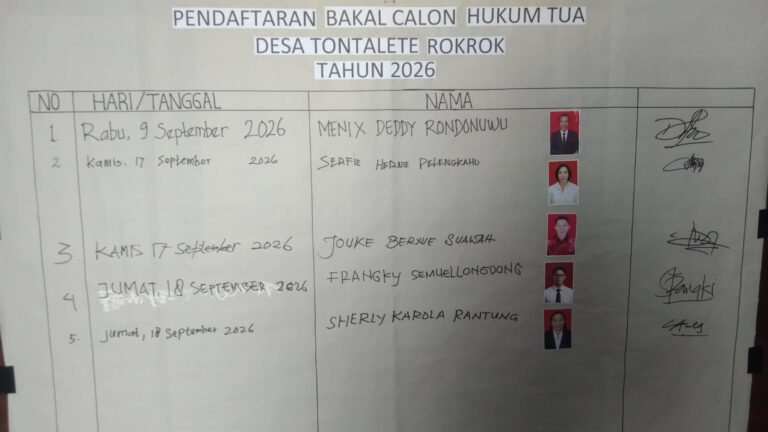 PENDAFTARAN BAKAL CALON HUKUM TUA
DESA TONTALETE ROKROK
TAHUN 2026
NO HARI/TANGGAL NAMA
1 Rabu, 9 September 2026 MENIX DEDDY RONDONUWU
2 Kamis. 17 September 2026 SERFIE HERNIE PELENGKAHU
3. KAMIS 17 September 2026 JOUKE BERXUE SUAWAH
4 JUMAT, 18 SEPTEMBER 2026 FRANGKY SEMUELLONGDONG
5. Jumat, 18 September 2026 SHERLY KAROLA RANTUNG